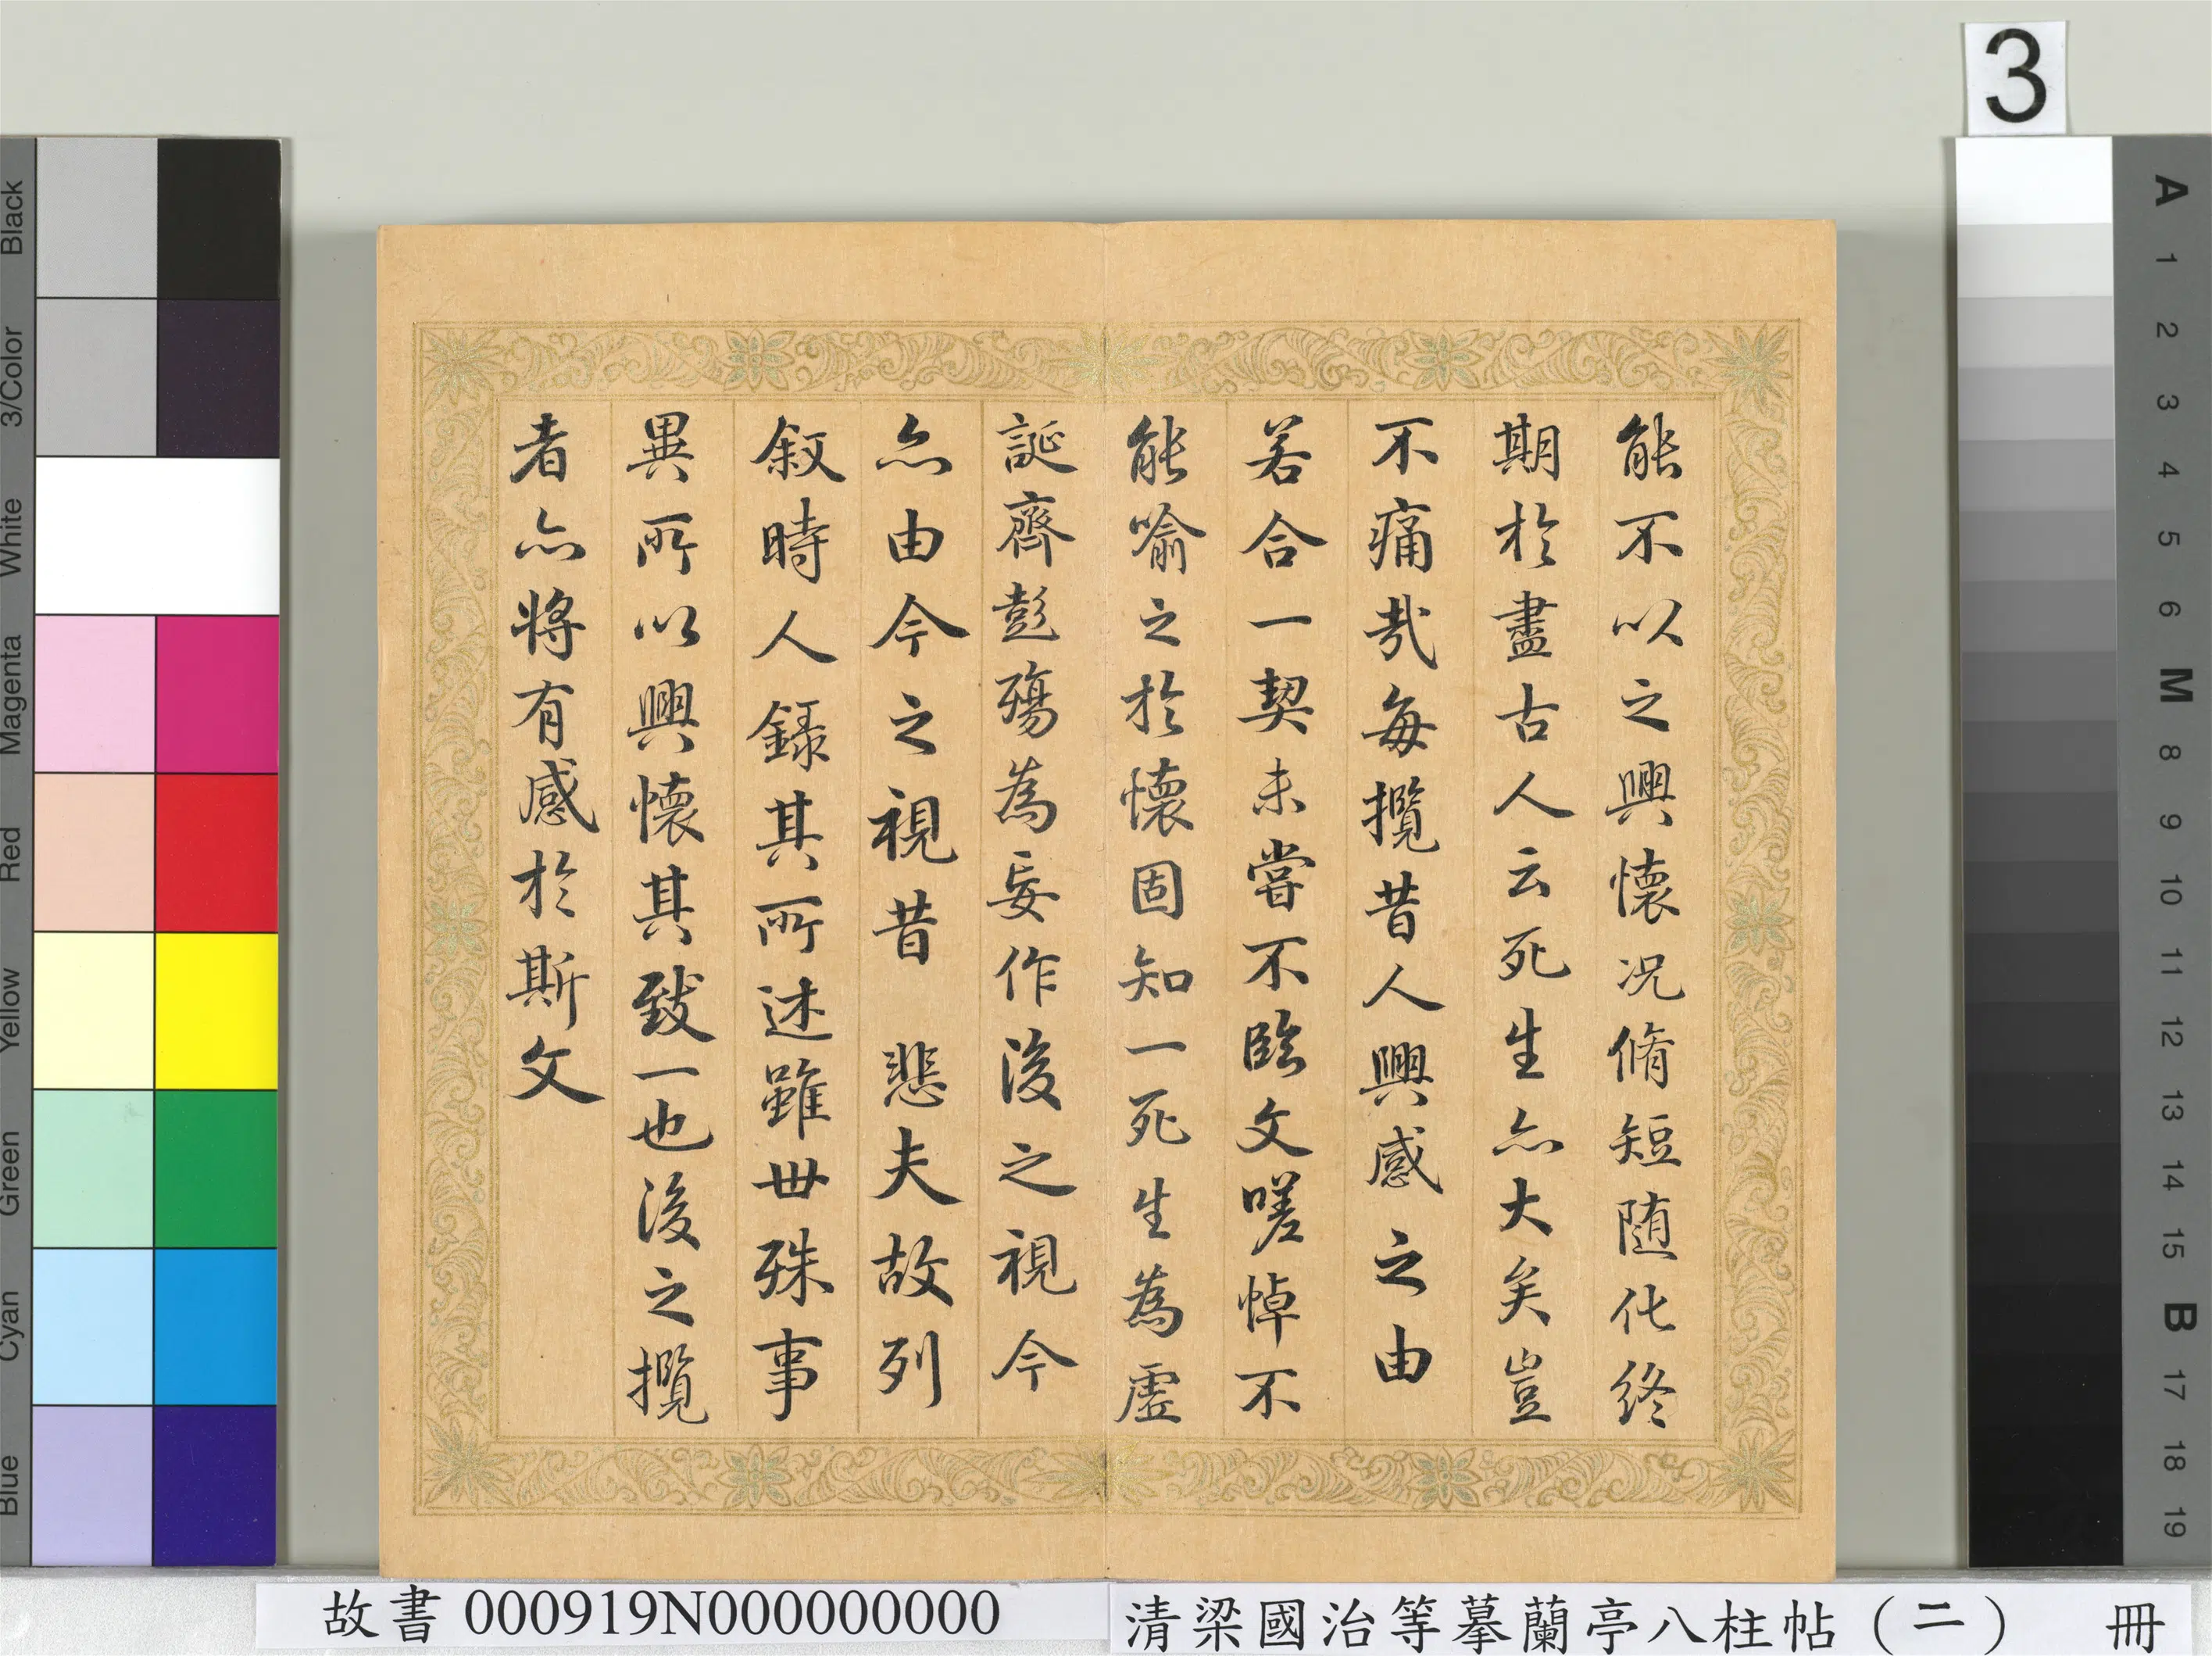 3
能不以之興懷况脩短隨化終
期於盡古人云死生亦大矣豈
不痛哉每攬昔人興感之由
若合一契未嘗不臨文嗟悼不
能喻之於懷固知一死生為虛
誕齊彭殤為妄作後之視今
亦由今之視昔 悲夫故列
敘時人錄其所述雖世殊事
異所以興懷其致一也後之攬
者亦將有感於斯文
故書 000919N000000000
清梁國治等摹蘭亭八柱帖（二） 冊
Black
3/Color
White
Magenta
Red
Yellow
Green
Cyan
Blue
A
1
2
3
4
5
6
M
8
9
10
11
12
13
14
15
B
17
18
19